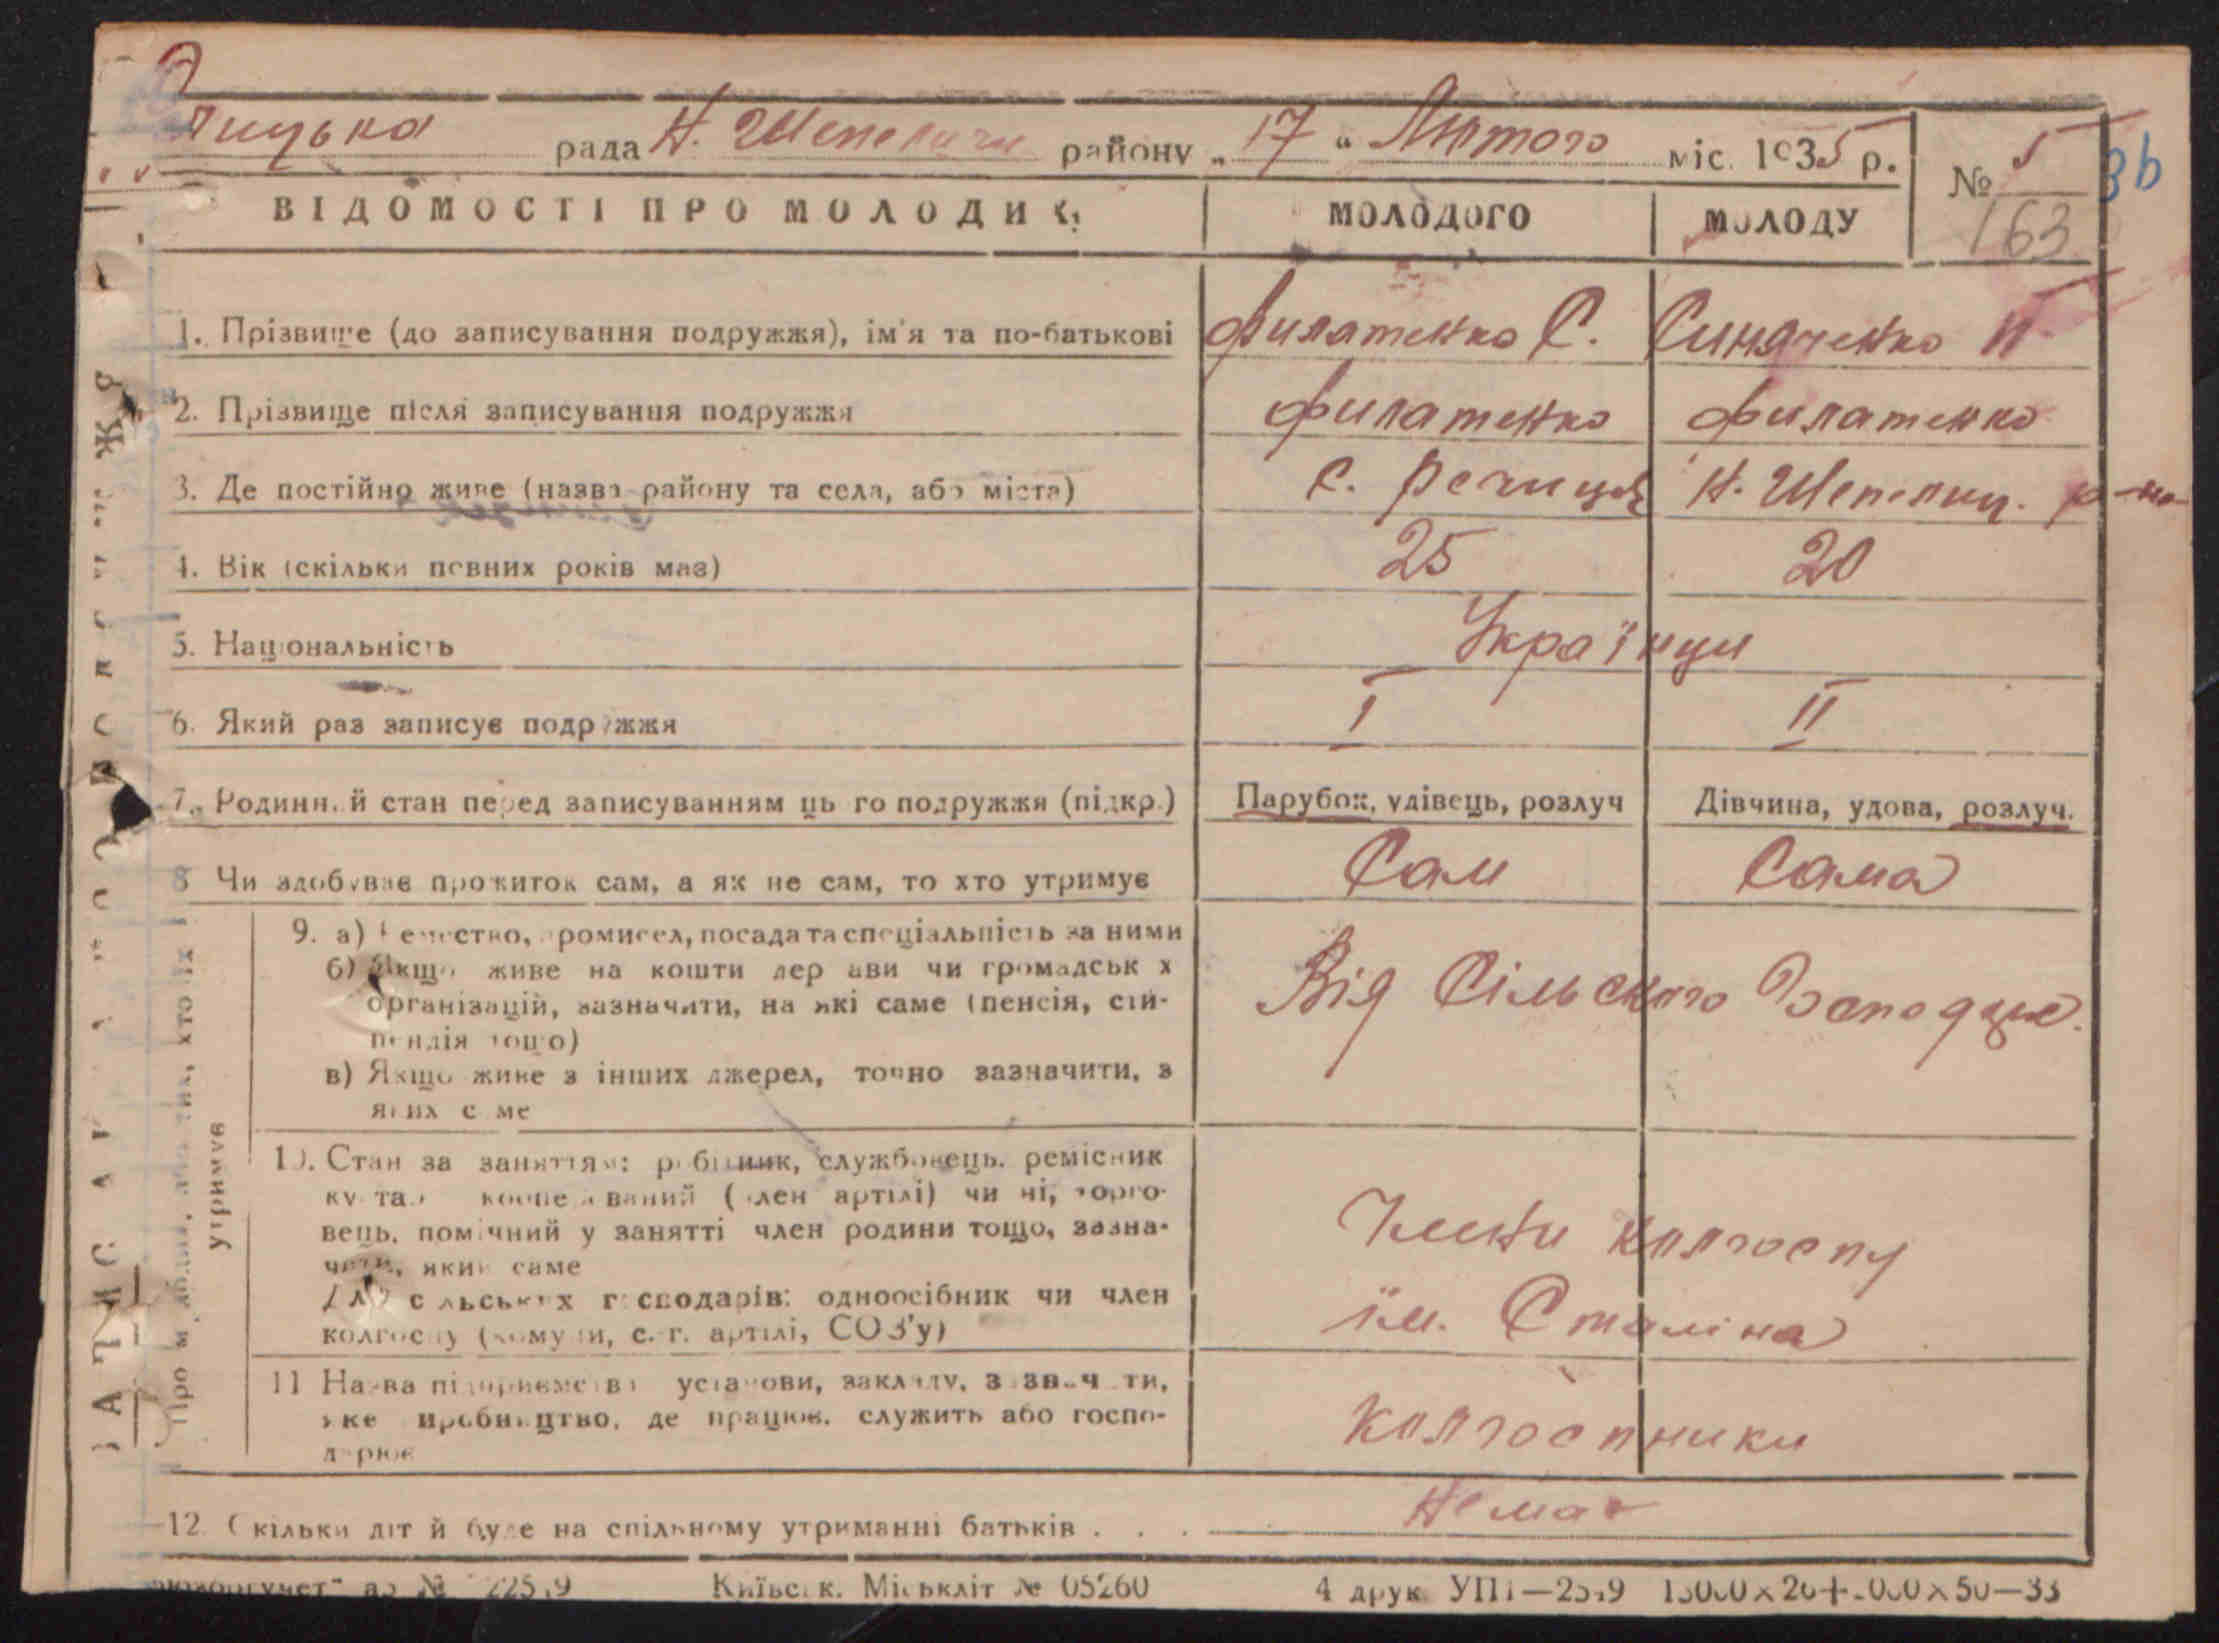 рада Н. Шепеличи району „17“ Лютого міс. 1935 р.
№ 5
163
ВІДОМОСТІ ПРО МОЛОДИХ
МОЛОДОГО
МОЛОДУ
1. Прізвище (до записування подружжя), ім'я та по-батькові
Филатенко С.
Синяченко
2. Прізвище після записування подружжя
Филатенко
Филатенко
3. Де постійно живе (назва району та села, або міста)
с. Речиця
Н. Шепелич. р-на
4. Вік (скільки повних років має)
25
20
5. Національність
Українци
6. Який раз записує подружжя
I
II
7. Родинний стан перед записуванням цього подружжя (підкр.)
Парубок, удівець, розлуч
Дівчина, удова, розлуч.
8 Чи здобуває прожиток сам, а як не сам, то хто утримує
Сам
Сама
утримує
9. а) Ремество, промисел, посада та спеціальність за ними
б) Якщо живе на кошти держави чи громадських
організацій, зазначити, на які саме (пенсія, сти-
пендія тощо)
в) Якщо живе з інших джерел, точно зазначити, з
яких саме
Від Сільского
10. Стан за заняттям: робітник, службовець, ремісник
кустар кооперований (член артілі) чи ні, торго-
вець, помічний у занятті член родини тощо, зазна-
чити, який саме
Для сільських господарів: одноосібник чи член
колгоспу (комуни, с.-г. артілі, СОЗ'у)
Члени колгоспу
ім. Сталіна
11 Назва підприємства установи, закладу, зазначити,
яке виробництво, де працює, служить або госпо-
дарює
Колгоспники
12. Скільки дітей буде на спільному утриманні батьків . . .
Немає
Київськ. Міськліт № 05260
4 друк УПП